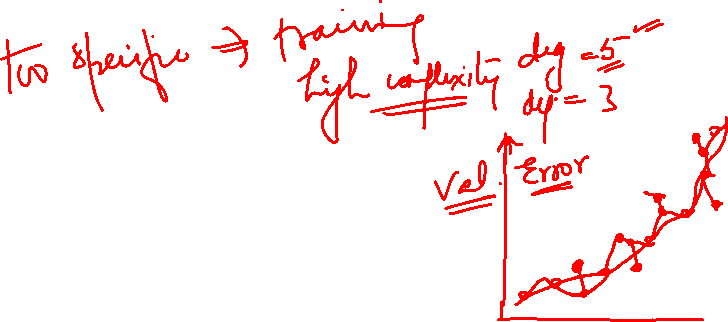 too specific ⇒ training
high complexity deg = 5
deg = 3
Val. Error